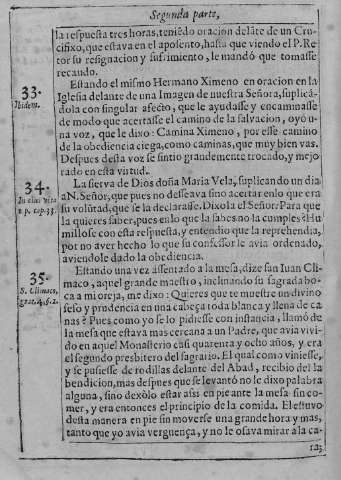 Segunda parte,
la respuesta tres horas, teniẽdo oracion delãte de un Cru-
cifixo, que estava en el aposento, hasta que viendo el P. Re-
tor su resignacion y sufrimiento, le mandó que tomasse
recaudo.
33.
Ibidem.
Estando el mismo Hermano Ximeno en oracion en la
Iglesia delante de una Imagen de nuestra Señora, suplicã-
dola con singular afecto, que le ayudasse y encaminasse
de modo que acertasse el camino de la salvacion, oyó u-
na voz, que le dixo: Camina Ximeno, por esse camino
de la obediencia ciega, como caminas, que muy bien vas.
Despues desta voz se sintio grandemente trocado, y mejo
rado en esta virtud.
34.
In eius vita
cap. 33.
La sierva de Dios doña Maria Vela, suplicando un dia
a N. Señor, que pues no desseava sino acertar en lo que era
su volũtad, que se la declarasse. Dixola el Señor: Para que
la quieres saber, pues en lo que la sabes no la cumples? Hu
millose con esta respuesta, y entendio que la reprehendia,
por no aver hecho lo que su confessor le avia ordenado,
aviendole dado la obediencia.
35.
S. Climaco,
grat. 4. §. 2.
Estando una vez assentado a la mesa, dize san Iuan Cli-
maco, aquel grande maestro, inclinando su sagrada bo-
ca a mi oreja, me dixo: Quieres que te muestre un divino
seso y prudencia en una cabeça toda blanca y llena de ca-
nas? Pues como yo se lo pidiesse con instancia, llamó de
la mesa que estava mas cercana a un Padre, que avia vivi-
do en aquel Monasterio casi quarenta y ocho años, y era
el segundo presbitero del sagrario. El qual como viniesse,
y se pusiesse de rodillas delante del Abad, recibio del la
bendicion, mas despues que se levantó no le dixo palabra
alguna, sino dexòlo estar assi en pie ante la mesa sin co-
mer, y era entonces el principio de la comida. El estuvo
desta manera en pie sin moverse una grande hora y mas,
tanto que yo avia verguença, y no le osava mirar a la ca-